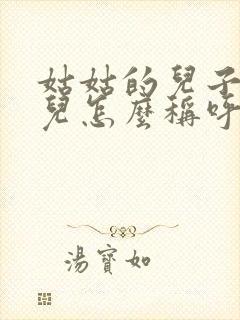 姑姑的兒子
兒怎麼稱呼
湯寶如